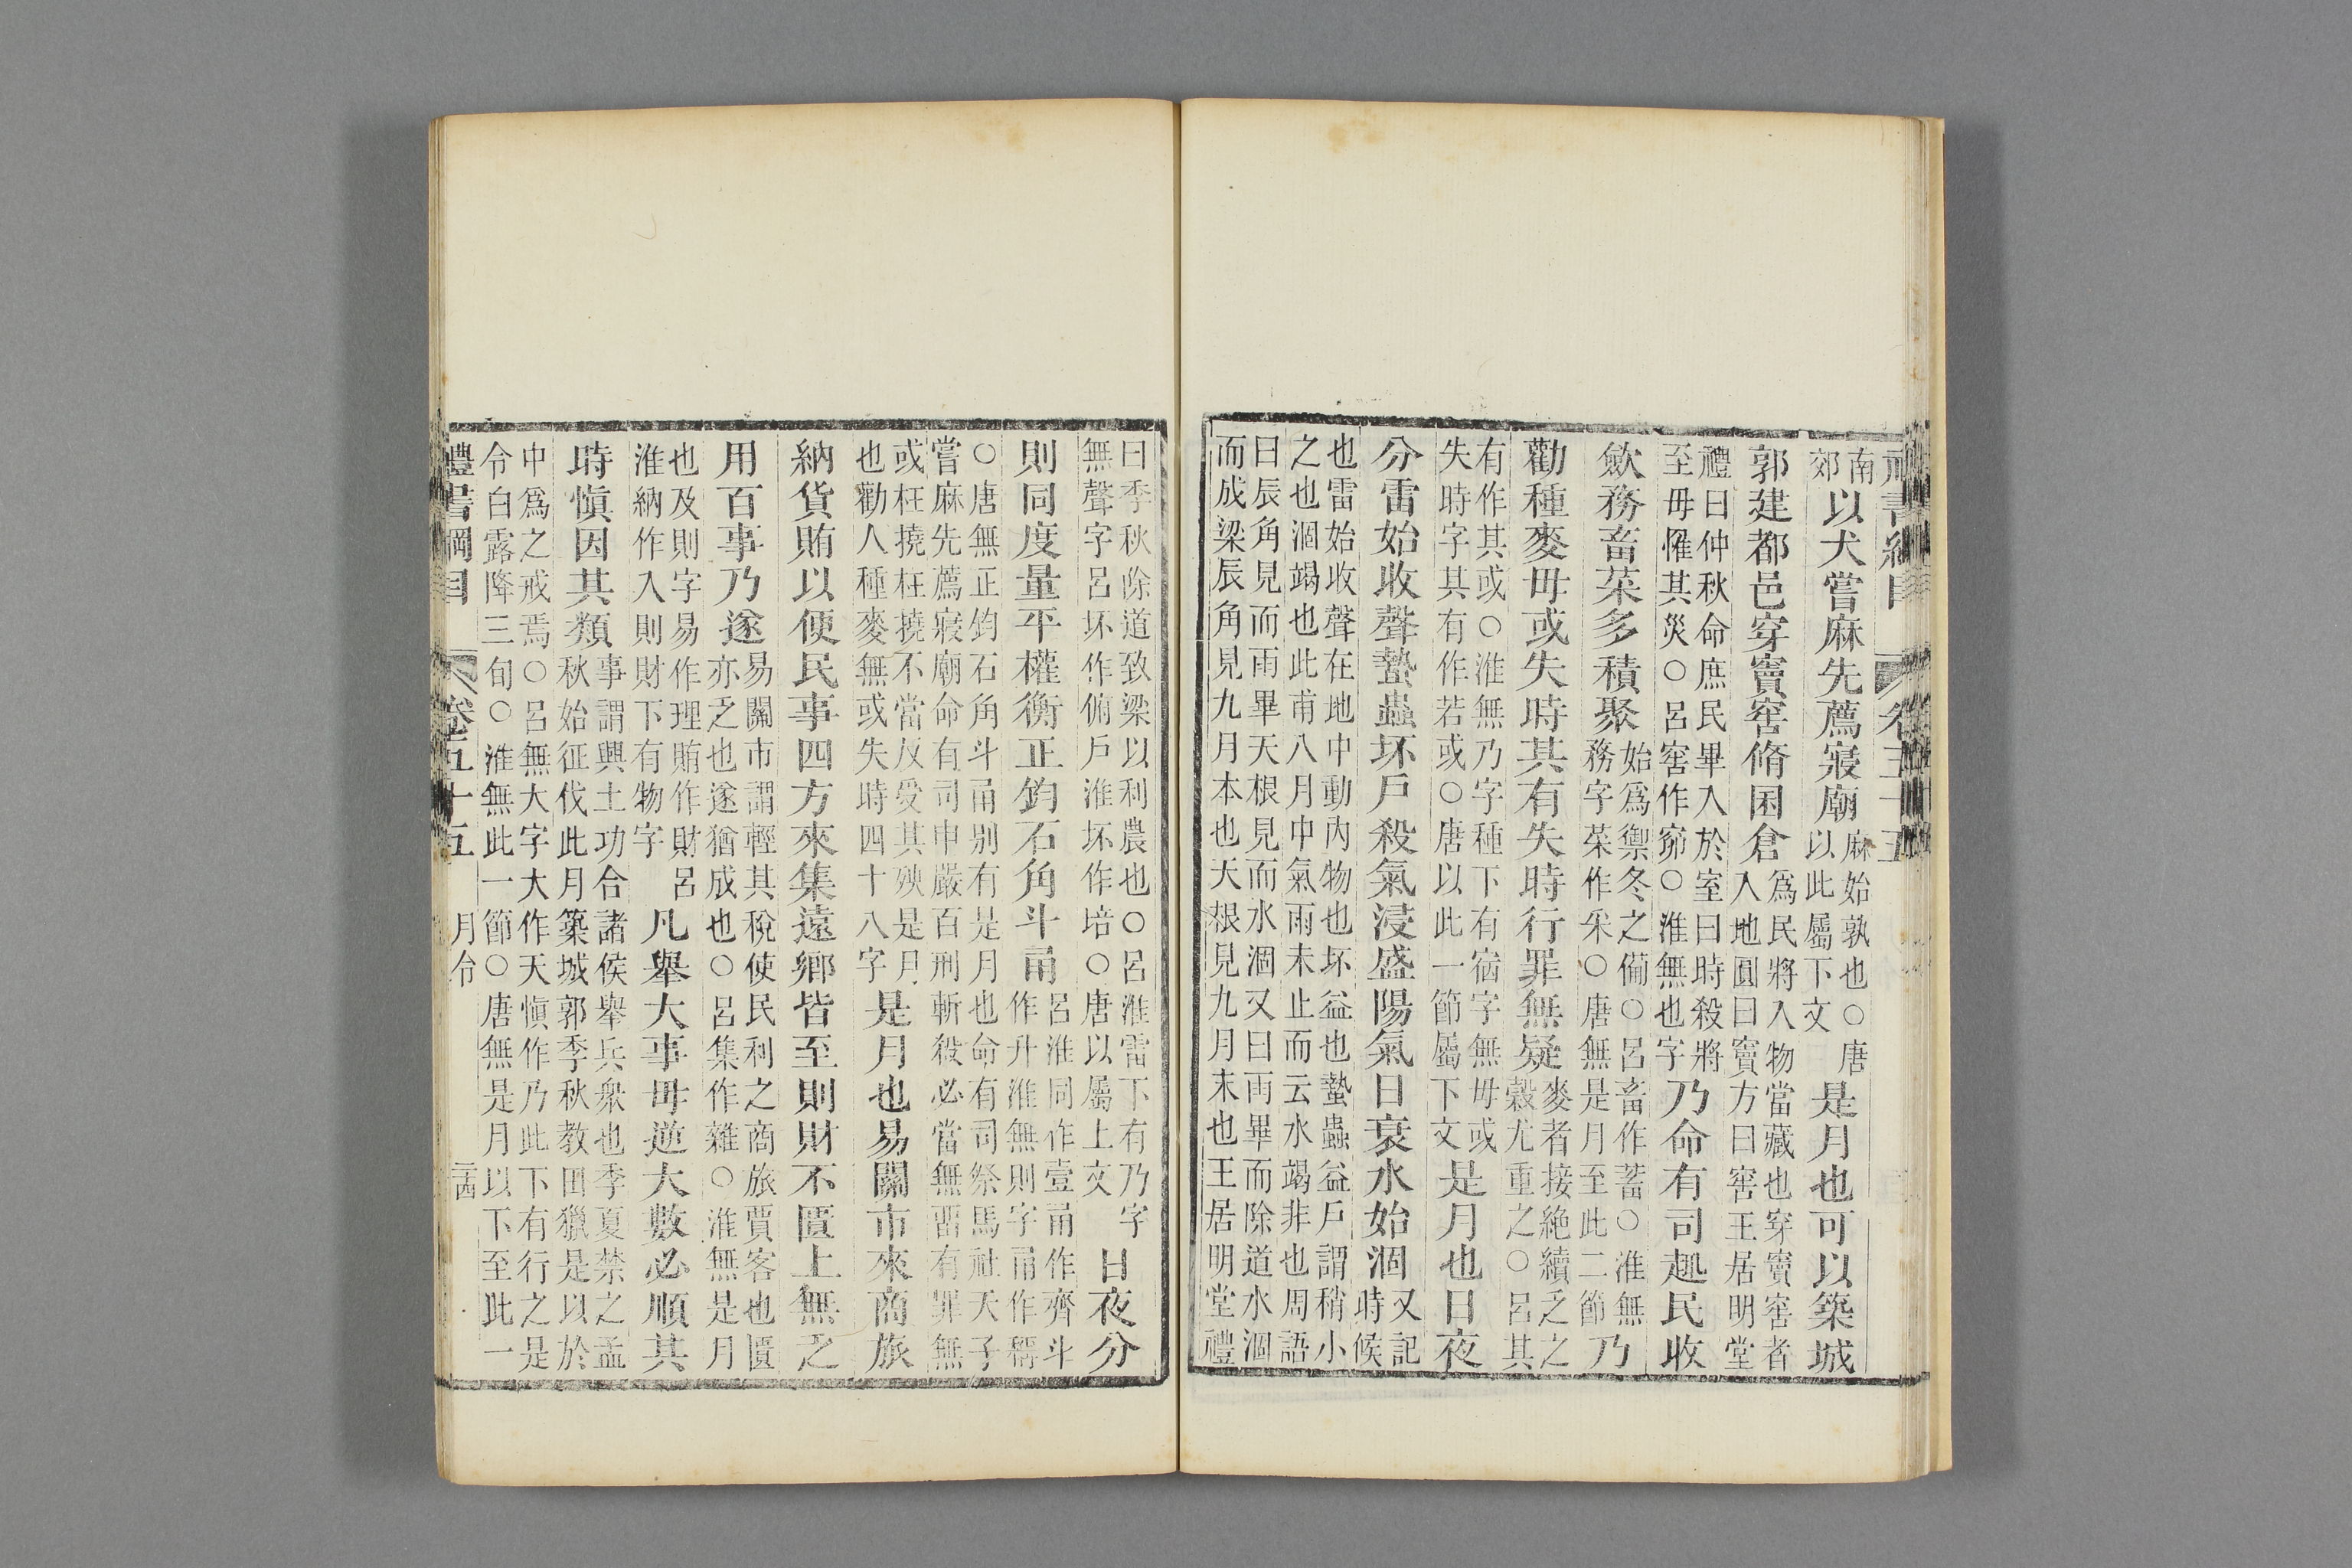 禮書綱目 卷五十五
南
郊
以犬嘗麻先薦寢廟
麻始孰也○唐
以此屬下文
是月也可以築城
郭建都邑穿竇窖脩囷倉
爲民將入物當藏也穿竇窖者
入地圓曰竇方曰窖王居明堂
禮曰仲秋命庶民畢入於室曰時殺將
至毋罹其災○呂窖作窌○淮無也字
乃命有司趣民收
斂務畜菜多積聚
始爲禦冬之備○呂畜作蓄○淮無
務字菜作采○唐無是月至此二節
乃
勸種麥毋或失時其有失時行罪無疑
麥者接絶續乏之
穀尤重之○呂其
有作其或○淮無乃字種下有宿字無毋或
失時字其有作若或○唐以此一節屬下文
是月也日夜
分雷始收聲蟄蟲坏戶殺氣浸盛陽氣日衰水始涸
又記
時候
也雷始收聲在地中動內物也坏益也蟄蟲益戶謂稍小
之也涸竭也此甫八月中氣雨未止而云水竭非也周語
曰辰角見而雨畢天根見而水涸又曰雨畢而除道水涸
而成梁辰角見九月本也天根見九月末也王居明堂禮
曰季秋除道致梁以利農也○呂淮雷下有乃字
無聲字呂坏作俯戶淮坏作培○唐以屬上文
日夜分
則同度量平權衡正鈞石角斗甬
呂淮同作壹甬作齊斗
作升淮無則字甬作稱
○唐無正鈞石角斗甬别有是月也命有司祭馬社天子
嘗麻先薦寢廟命有司申嚴百刑斬殺必當無畱有罪無
或枉撓枉撓不當反受其殃是月
也勸人種麥無或失時四十八字
是月也易關市來商旅
納貨賄以便民事四方來集遠鄉皆至則財不匱上無乏
用百事乃遂
易關市謂輕其稅使民利之商旅賈客也匱
亦乏也遂猶成也○呂集作雜○淮無是月
也及則字易作理賄作財呂
淮納作入則財下有物字
凡舉大事毋逆大數必順其
時慎因其類
事謂興土功合諸侯舉兵衆也季夏禁之孟
秋始征伐此月築城郭季秋教田獵是以於
中爲之戒焉○呂無大字大作天愼作乃此下有行之是
令白露降三旬○淮無此一節○唐無是月以下至此一
禮書綱目 卷五十五 月令